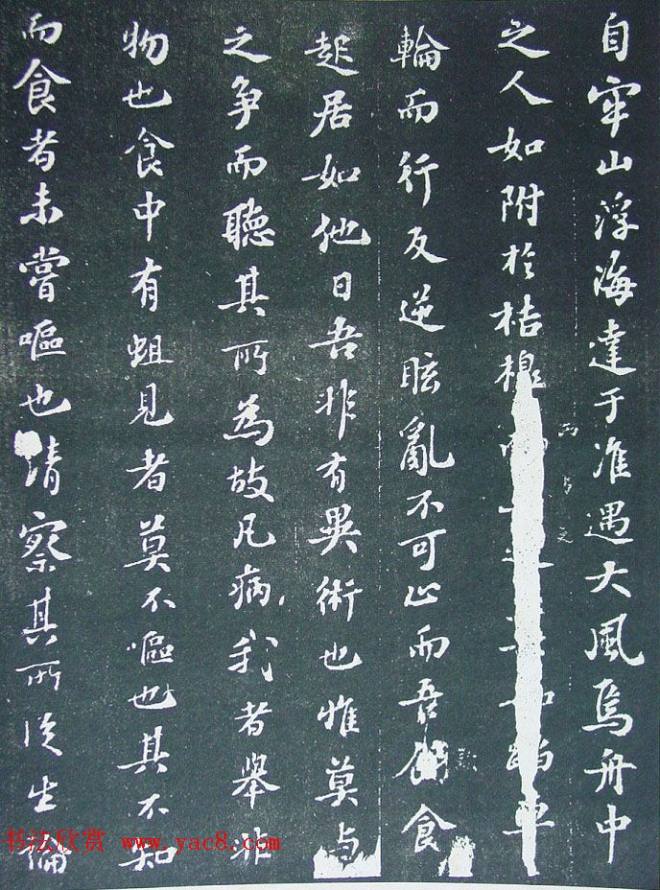 自牢山浮海達于淮遇大風焉舟中
之人如附於桔槔車
輪而行反逆眩亂不可止而吾飲食
起居如他日吾非有異術也惟莫与
之争而聽其所為故凡病我者舉非
物也食中有蛆見者莫不嘔也其不知
而食者未嘗嘔也請察其所從生論
书法欣赏 www.yac8.com